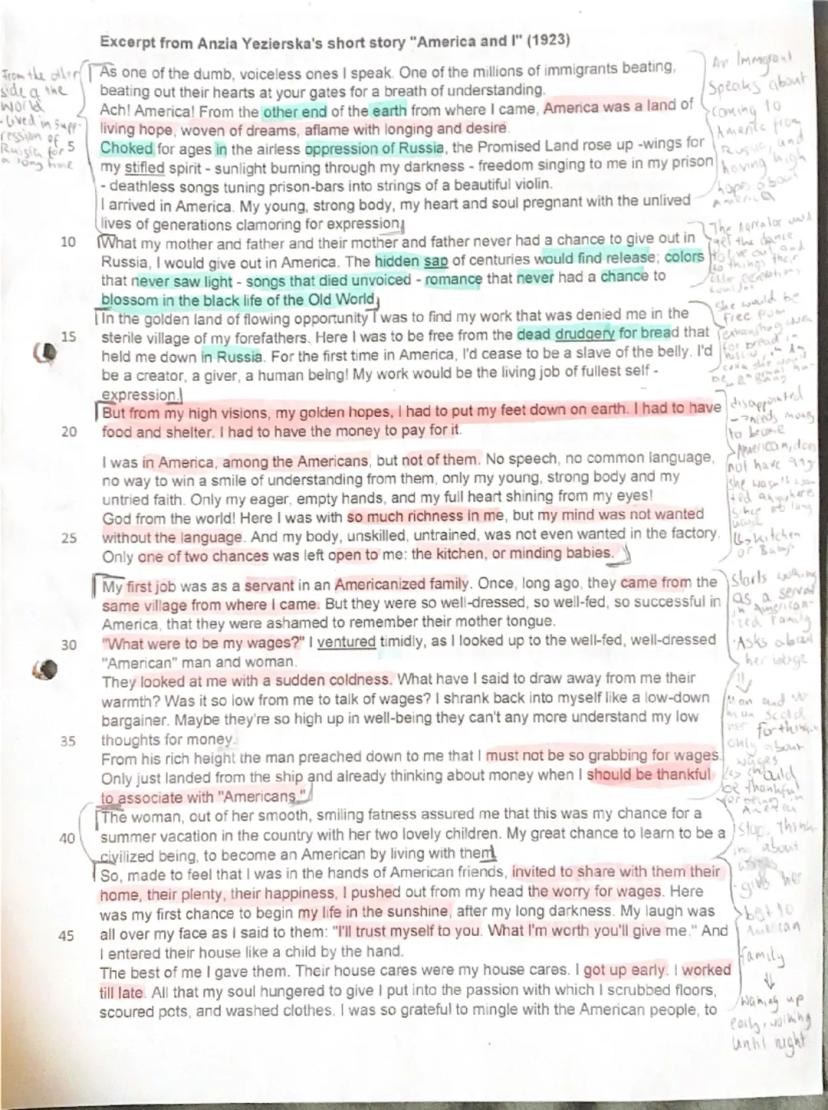 Excerpt from Anzia Yezierska's short story "America and I" (1923)
As one of the dumb, voiceless ones I speak. One of the millions of immigrants beating,
beating out their hearts at your gates for a breath of understanding.
Ach! America! From the other end of the earth from where I came, America was a land of
living hope, woven of dreams, aflame with longing and desire.
5 Choked for ages in the airless oppression of Russia, the Promised Land rose up -wings for
my stifled spirit - sunlight burning through my darkness - freedom singing to me in my prison
- deathless songs tuning prison-bars into strings of a beautiful violin.
I arrived in America. My young, strong body, my heart and soul pregnant with the unlived
lives of generations clamoring for expression.
10 What my mother and father and their mother and father never had a chance to give out in
Russia, I would give out in America. The hidden sap of centuries would find release; colors
that never saw light - songs that died unvoiced - romance that never had a chance to
blossom in the black life of the Old World.
In the golden land of flowing opportunity I was to find my work that was denied me in the
15 sterile village of my forefathers. Here I was to be free from the dead drudgery for bread that
held me down in Russia. For the first time in America, I'd cease to be a slave of the belly. I'd
be a creator, a giver, a human being! My work would be the living job of fullest self -
expression.
But from my high visions, my golden hopes, I had to put my feet down on earth. I had to have
20 food and shelter. I had to have the money to pay for it.
I was in America, among the Americans, but not of them. No speech, no common language,
no way to win a smile of understanding from them, only my young, strong body and my
untried faith. Only my eager, empty hands, and my full heart shining from my eyes!
God from the world! Here I was with so much richness in me, but my mind was not wanted
25 without the language. And my body, unskilled, untrained, was not even wanted in the factory.
Only one of two chances was left open to me: the kitchen, or minding babies.
My first job was as a servant in an Americanized family. Once, long ago, they came from the
same village from where I came. But they were so well-dressed, so well-fed, so successful in
America, that they were ashamed to remember their mother tongue.
30 "What were to be my wages?" I ventured timidly, as I looked up to the well-fed, well-dressed
"American" man and woman.
They looked at me with a sudden coldness. What have I said to draw away from me their
warmth? Was it so low from me to talk of wages? I shrank back into myself like a low-down
bargainer. Maybe they're so high up in well-being they can't any more understand my low
35 thoughts for money.
From his rich height the man preached down to me that I must not be so grabbing for wages.
Only just landed from the ship and already thinking about money when I should be thankful
to associate with "Americans."
The woman, out of her smooth, smiling fatness assured me that this was my chance for a
40 summer vacation in the country with her two lovely children. My great chance to learn to be a
civilized being, to become an American by living with them.
So, made to feel that I was in the hands of American friends, invited to share with them their
home, their plenty, their happiness, I pushed out from my head the worry for wages. Here
was my first chance to begin my life in the sunshine, after my long darkness. My laugh was
45 all over my face as I said to them: "I'll trust myself to you. What I'm worth you'll give me." And
I entered their house like a child by the hand.
The best of me I gave them. Their house cares were my house cares. I got up early. I worked
till late. All that my soul hungered to give I put into the passion with which I scrubbed floors,
scoured pots, and washed clothes. I was so grateful to mingle with the American people, to
From the other
side of the
World
- Lived in supp-
ression of
Russia for
a long time
An Immigrant
Speaks about
coming to
America from
Russia, and
having high
hopes about
America
She would be
free from
disappointed
-> needs money
to become
↳ kitchen
or Babys
Starts working
as a servant
in American-
ized family
Asks about
her wage
only about
wages
↳ should
be thankful
for being in
America
gives her
best to
American
family
↓
Waking up
early, working
until night